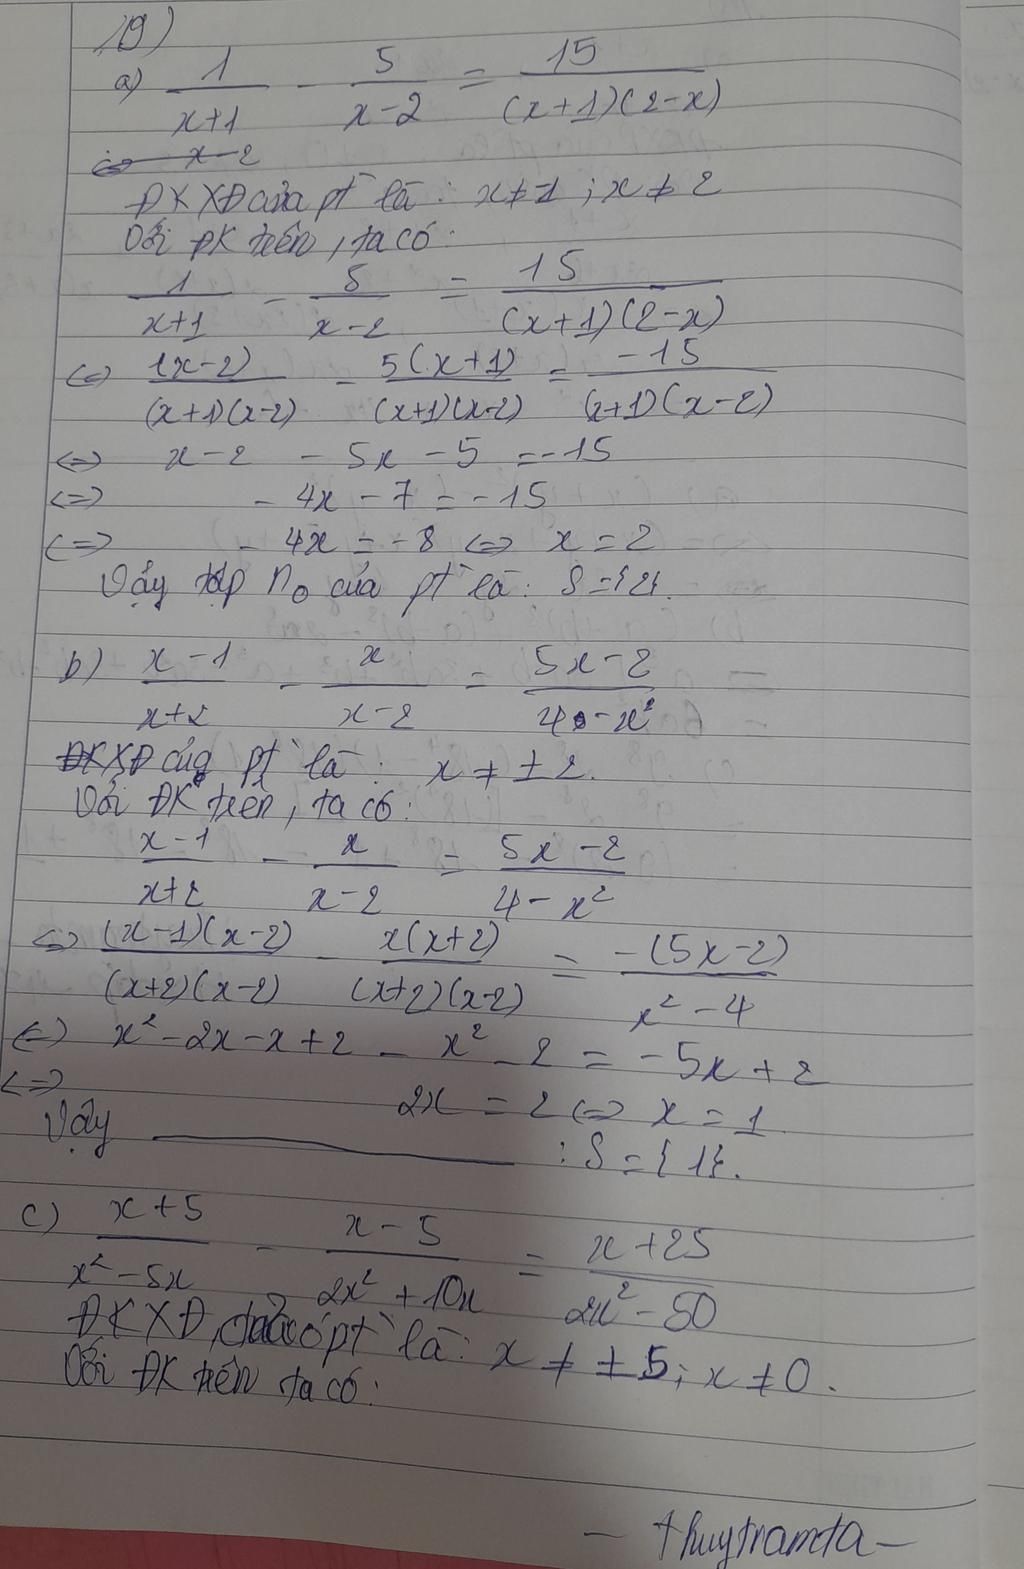 19)
a) 1/(x+1) - 5/(x-2) = 15/((x+1)(2-x))
<=> x-2
ĐKXĐ của pt là: x≠-1; x≠2
Với ĐK trên, ta có:
1/(x+1) - 5/(x-2) = 15/((x+1)(2-x))
<=> 1(x-2)/((x+1)(x-2)) - 5(x+1)/((x+1)(x-2)) = -15/((x+1)(x-2))
<=> x-2 - 5x-5 = -15
<=> -4x-7 = -15
<=> -4x = -8 <=> x = 2
Vậy tập no của pt là: S={2}.
b) (x-1)/(x+2) - x/(x-2) = (5x-2)/(4-x²)
ĐKXĐ của pt là: x≠±2.
Với ĐK trên, ta có:
(x-1)/(x+2) - x/(x-2) = (5x-2)/(4-x²)
<=> (x-1)(x-2)/((x+2)(x-2)) - x(x+2)/((x+2)(x-2)) = -(5x-2)/(x²-4)
<=> x²-2x-x+2 - x²-2 = -5x+2
<=> 2x = 2 <=> x = 1
Vậy : S={1}.
c) (x+5)/(x²-5x) - (x-5)/(2x²+10x) = (x+25)/(2x²-50)
ĐKXĐ pt là: x≠±5; x≠0.
Với ĐK trên ta có:
- thuytramta -